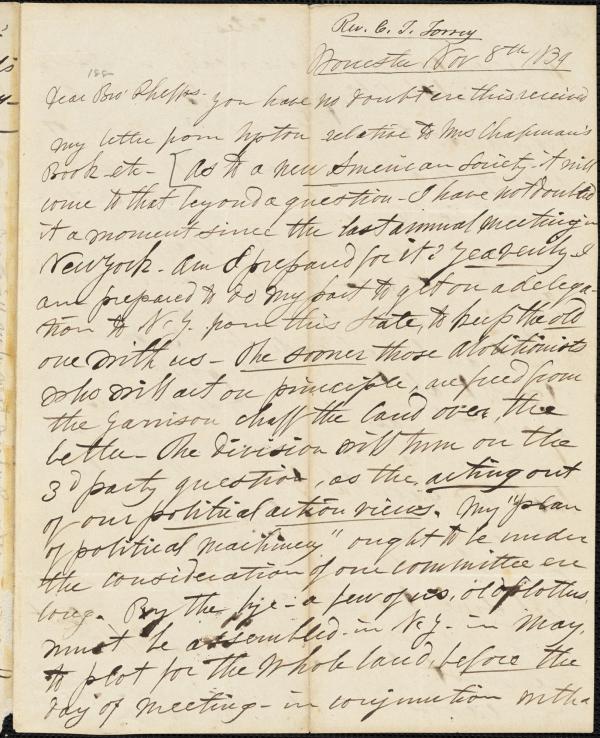 Rev. C. T. Torrey
Worcester Nov 8th 1839
188
Dear Bro' Phelps - you have no doubt ere this received
my letter from Upton relative to Mrs Chapman's
Book etc - [as to a new American Society. it will
come to that beyond a question - I have not doubted
it a moment since the last annual meeting in
New York. Am I prepared for it? Yea verily I
am prepared to do my part to get on a delega-
tion to N.Y. from this State, to keep the old
one with us - The sooner those Abolitionists
who will act on principle, are freed from
the Garrison chaff the land over, the
better - The division will turn on the
3d party question, as the acting out
of our political action views. My "plan
of political machinery" ought to be under
the consideration of our committee ere
long. By the bye - a few of us, old plotters,
must be assembled - in N.Y. - in May.
to plot for the whole land, before the
day of meeting - in conjunction with a